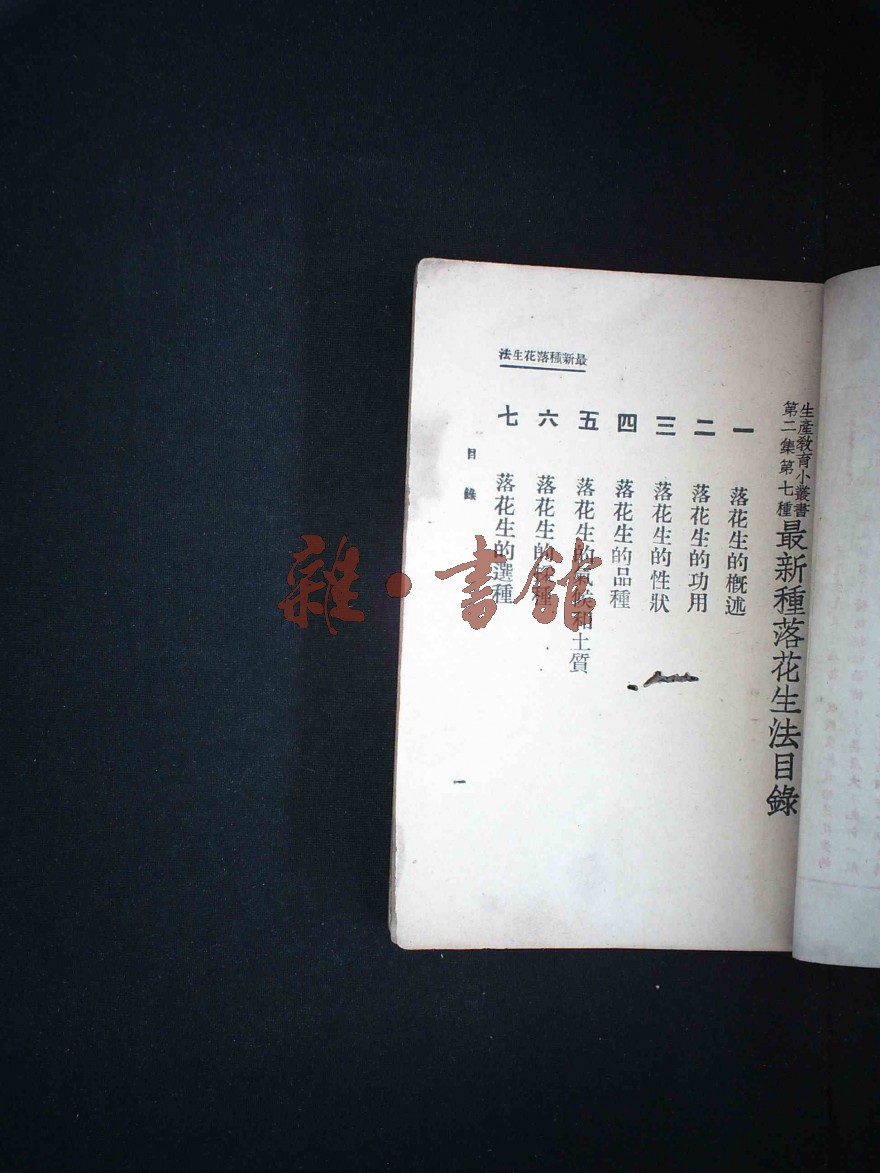 生產教育小叢書
第二集第七種
最新種落花生法目錄
一 落花生的概述
二 落花生的功用
三 落花生的性狀
四 落花生的品種
五 落花生的氣候和土質
六 落花生的種
七 落花生的選種
最新種落花生法
目錄
一
雜·書館